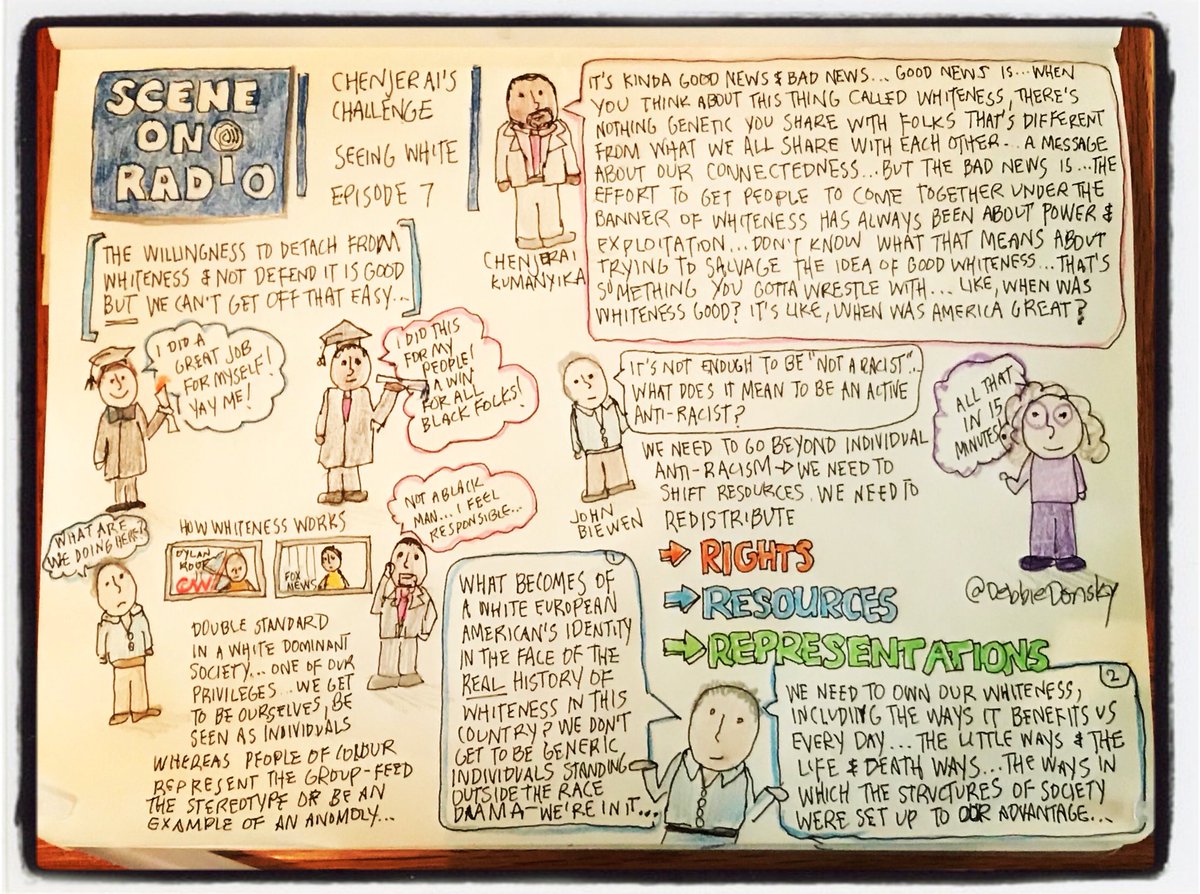 SCENE
ON
RADIO
CHENJERAI'S
CHALLENGE
SEEING WHITE
EPISODE 7
CHENJERAI
KUMANYIKA
IT'S KINDA GOOD NEWS & BAD NEWS... GOOD NEWS IS... WHEN
YOU THINK ABOUT THIS THING CALLED WHITENESS, THERE'S
NOTHING GENETIC YOU SHARE WITH FOLKS THAT'S DIFFERENT
FROM WHAT WE ALL SHARE WITH EACH OTHER... A MESSAGE
ABOUT OUR CONNECTEDNESS... BUT THE BAD NEWS IS... THE
EFFORT TO GET PEOPLE TO COME TOGETHER UNDER THE
BANNER OF WHITENESS HAS ALWAYS BEEN ABOUT POWER &
EXPLOITATION... DON'T KNOW WHAT THAT MEANS ABOUT
TRYING TO SALVAGE THE IDEA OF GOOD WHITENESS... THAT'S
SOMETHING YOU GOTTA WRESTLE WITH... LIKE, WHEN WAS
WHITENESS GOOD? IT'S LIKE, WHEN WAS AMERICA GREAT?
THE WILLINGNESS TO DETACH FROM
WHITENESS & NOT DEFEND IT IS GOOD
BUT WE CAN'T GET OFF THAT EASY...
I DID A
GREAT JOB
FOR MYSELF!
YAY ME!
I DID THIS
FOR MY
PEOPLE!
A WIN
FOR ALL
BLACK FOLKS!
IT'S NOT ENOUGH TO BE "NOT A RACIST"...
WHAT DOES IT MEAN TO BE AN ACTIVE
ANTI-RACIST?
JOHN
BIEWEN
WE NEED TO GO BEYOND INDIVIDUAL
ANTI-RACISM → WE NEED TO
SHIFT RESOURCES. WE NEED TO
REDISTRIBUTE
→ RIGHTS
→ RESOURCES
→ REPRESENTATIONS
ALL THAT
IN 15
MINUTES
@DebbieDonsky
WHAT ARE
WE DOING HERE?!
HOW WHITENESS WORKS
DYLAN
ROOF
CNN
FOX
NEWS
NOT A BLACK
MAN... I FEEL
RESPONSIBLE...
DOUBLE STANDARD
IN A WHITE DOMINANT
SOCIETY... ONE OF OUR
PRIVILEGES... WE GET
TO BE OURSELVES, BE
SEEN AS INDIVIDUALS
WHEREAS PEOPLE OF COLOUR
REPRESENT THE GROUP-FEED
THE STEREOTYPE OR BE AN
EXAMPLE OF AN ANOMOLY...
1
WHAT BECOMES OF
A WHITE EUROPEAN
AMERICAN'S IDENTITY
IN THE FACE OF THE
REAL HISTORY OF
WHITENESS IN THIS
COUNTRY? WE DON'T
GET TO BE GENERIC
INDIVIDUALS STANDING
OUTSIDE THE RACE
DRAMA - WE'RE IN IT...
2
WE NEED TO OWN OUR WHITENESS,
INCLUDING THE WAYS IT BENEFITS US
EVERY DAY... THE LITTLE WAYS & THE
LIFE & DEATH WAYS... THE WAYS IN
WHICH THE STRUCTURES OF SOCIETY
WERE SET UP TO OUR ADVANTAGE...